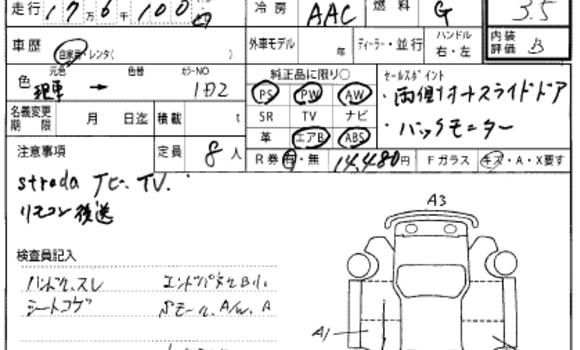 走行 17万6千100 冷房 AAC 燃料 G 3.5
車歴 自家用・レンタ( ) 外車モデル 年 ディーラー・並行 ハンドル 右・左 内装評価 B
色 元色 → 色替 カラーNO 1D2 純正品に限り○ セールスポイント
PS PW AW ・両側オートスライドドア
名義変更期限 月 日迄 積載 t SR TV ナビ ・バックモニター
革 エアB ABS
注意事項 定員 8人 R券 有・無 14,480円 Fガラス キズ・A・X要す
strada ナビ. TV.
リモコン後送
A3
検査員記入
ハンドルスレ
シートコゲ A/W. A
A1